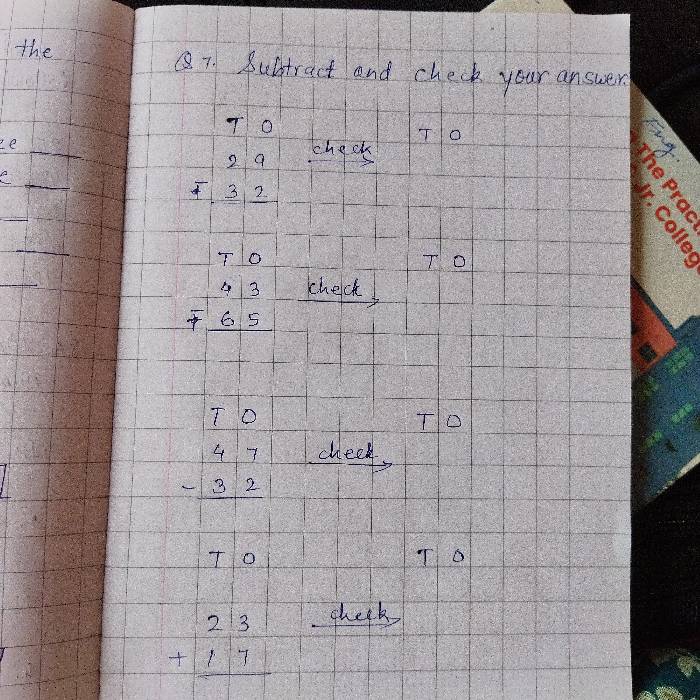 the
Q 7. Subtract and check your answer
T O T O
2 9 check
+ 3 2
T O T O
4 3 check
+ 6 5
T O T O
4 7 check
- 3 2
T O T O
2 3 check
+ 1 7
Eng.
The Practi
Jr. College